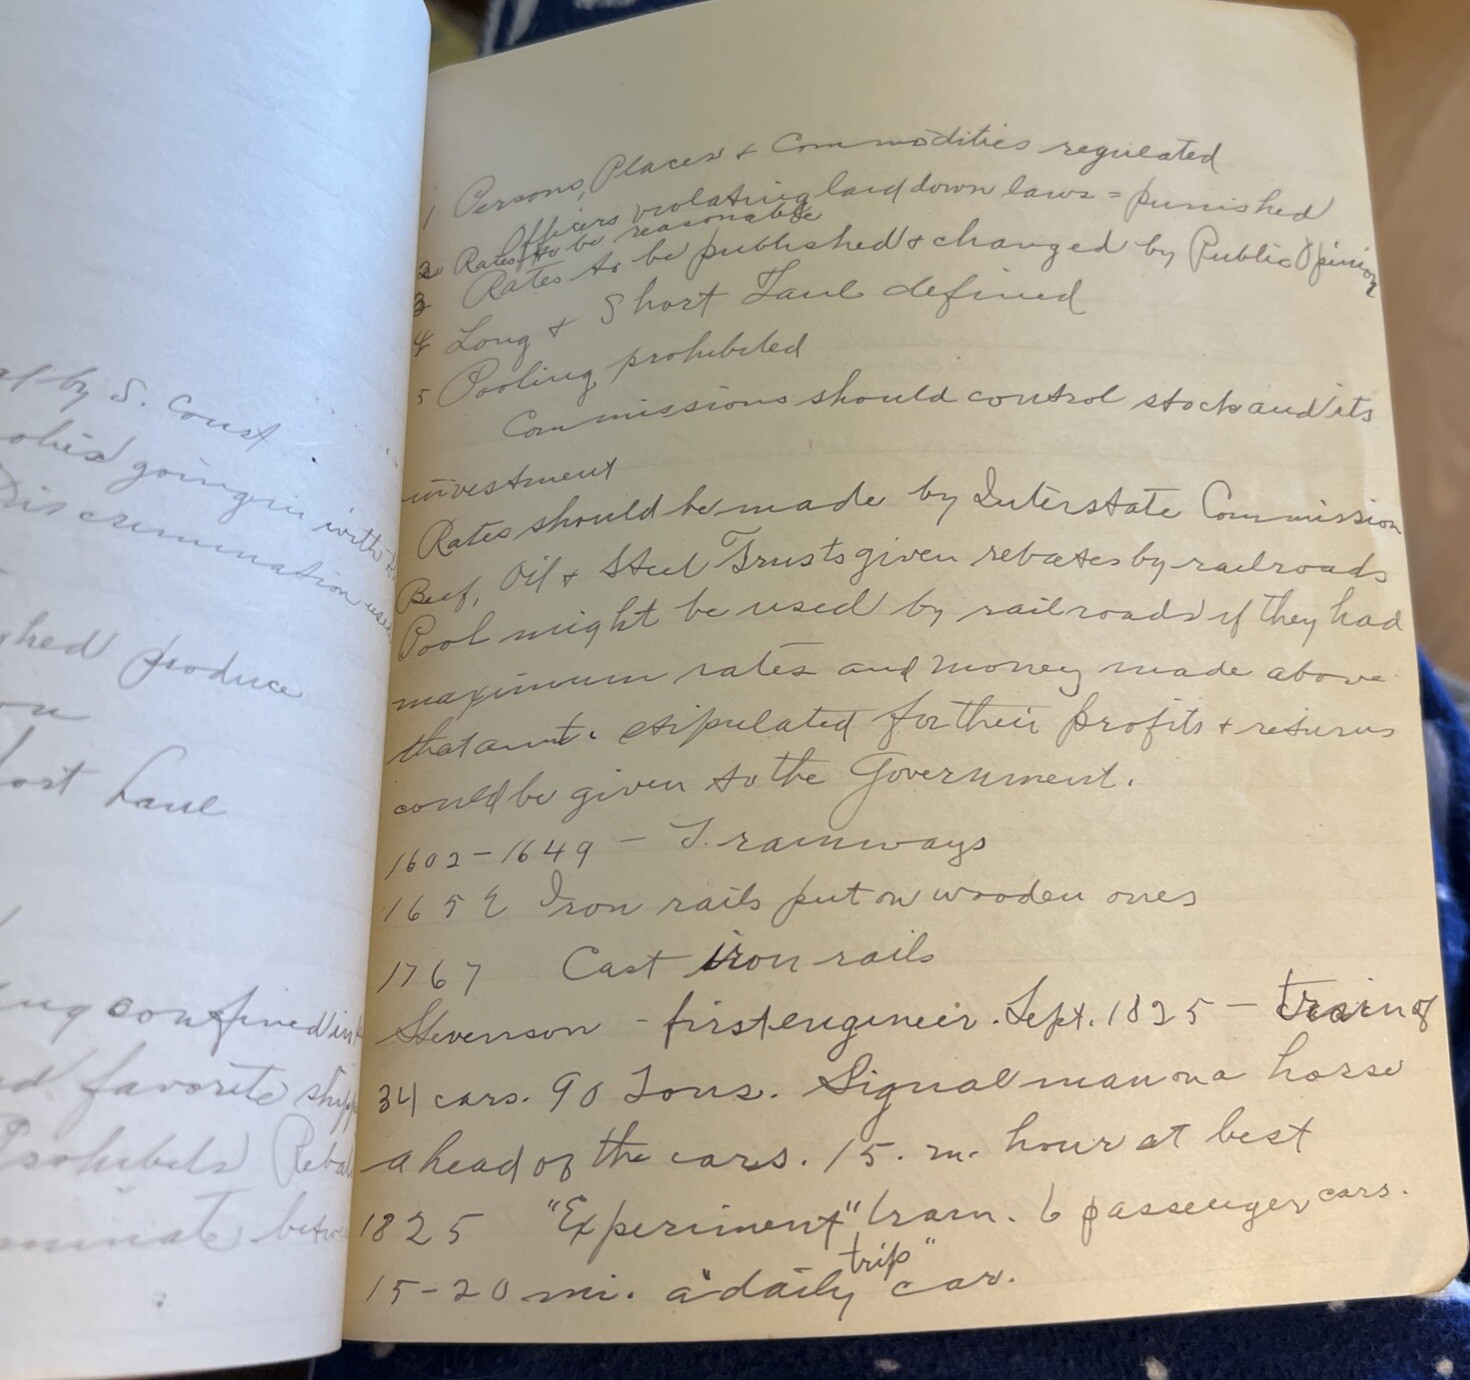 al by S. Court
going in with
Discrimination used
shed produce
on
ort haul
ing confined in
d favorite shipp
Prohibits Reba
minate betwee
1 Persons, Places + Commodities regulated
Officers violating laid down laws = punished
2 Rates to be reasonable
3 Rates to be published + changed by Public Opinion
4 Long + Short Haul defined
5 Pooling prohibited
Commissions should control stock and its
investment
Rates should be made by Interstate Commission
Beef, Oil + Steel Trusts given rebates by railroads
Pool might be used by railroads if they had
maximum rates and money made above
that amt. stipulated for their profits + returns
could be given to the Government.
1602-1649 - Tramways
165 Iron rails put on wooden ones
1767 Cast iron rails
Stevenson - first engineer. Sept. 1825 - train of
34 cars. 90 Tons. Signal man on a horse
ahead of the cars. 15. m. hour at best
1825 "Experiment" tram. 6 passenger cars.
15-20 mi. a "daily trip" car.